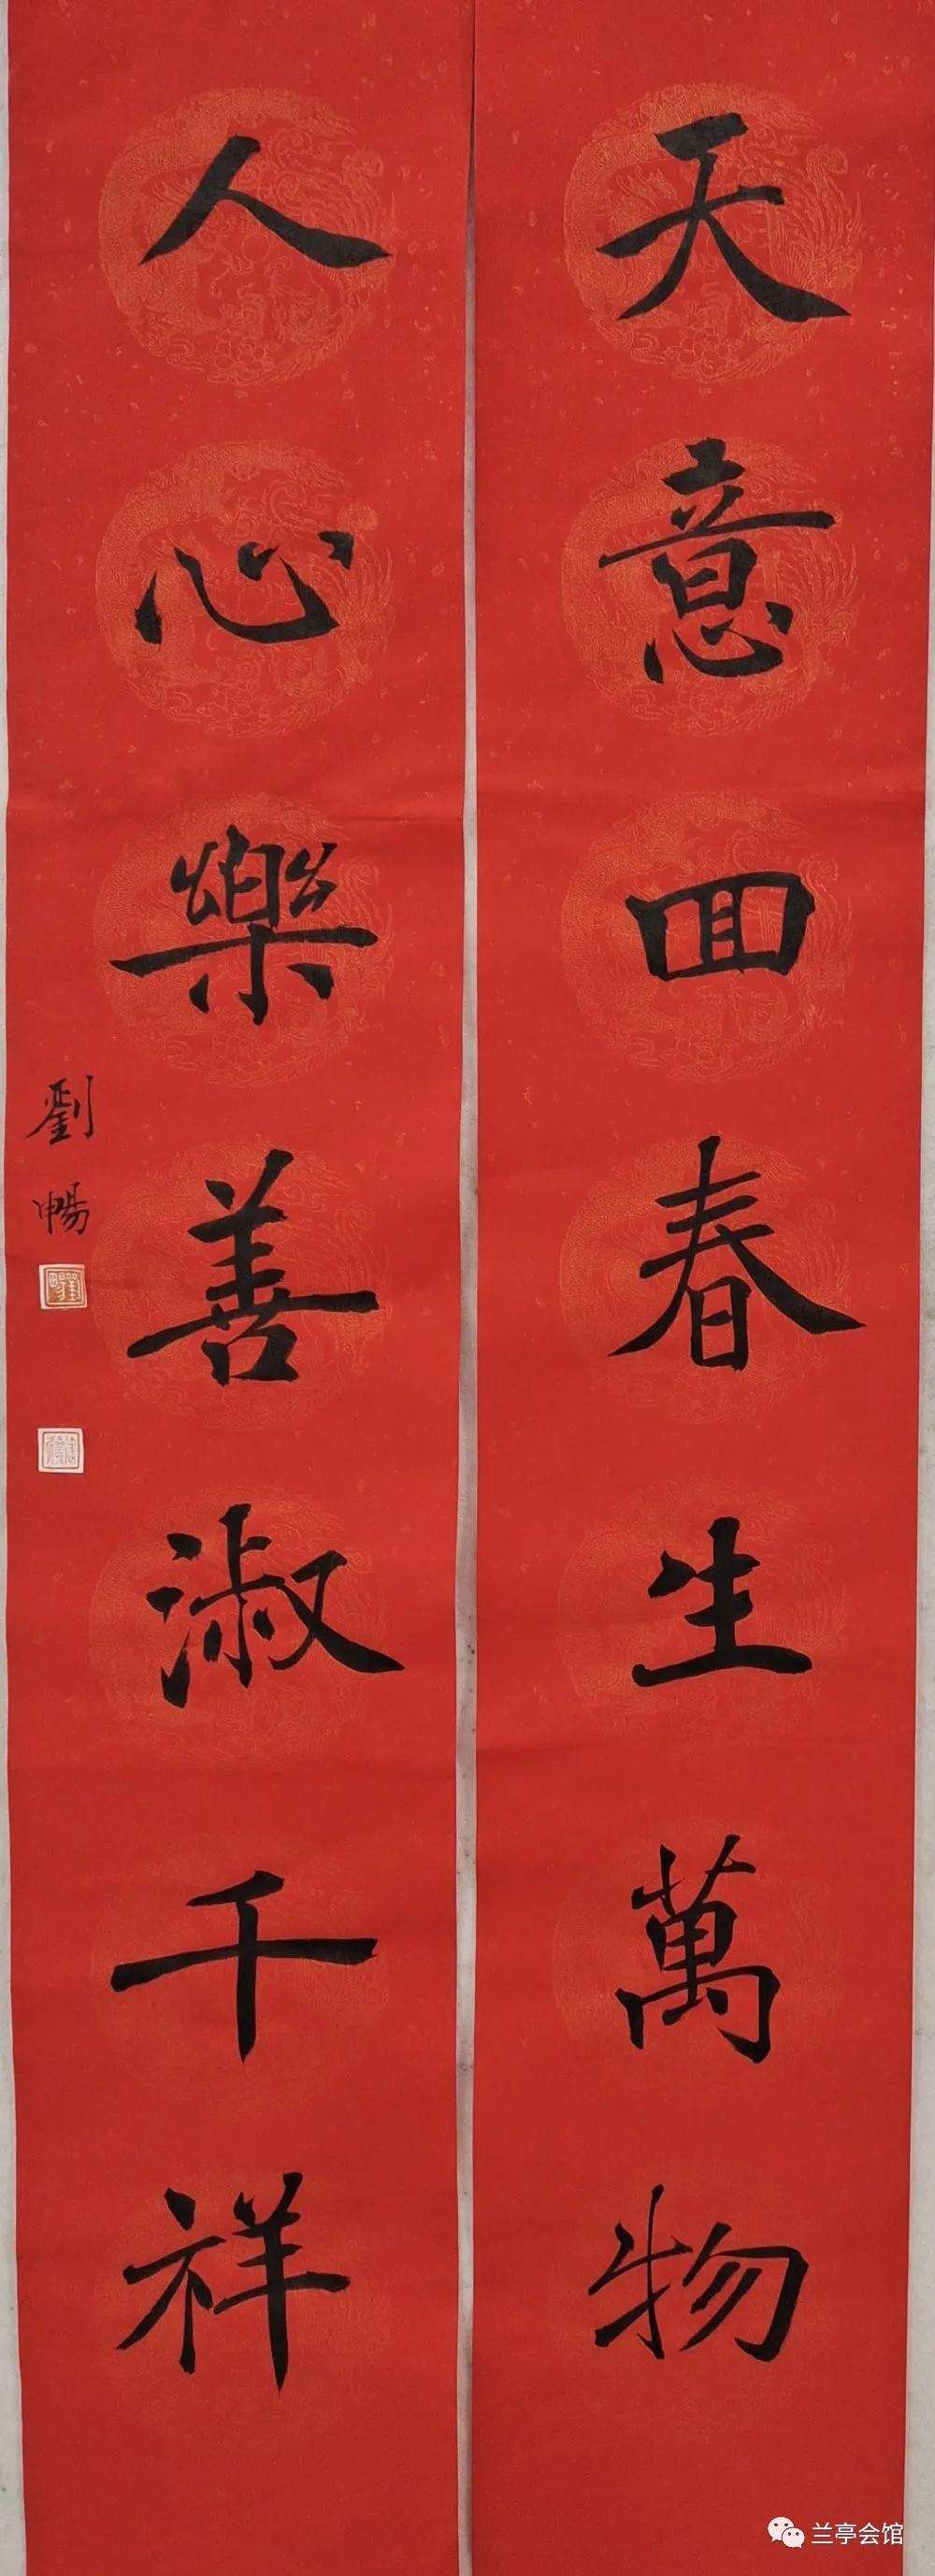 天意回春生萬物
人心樂善淑千祥
劉暢
兰亭会馆